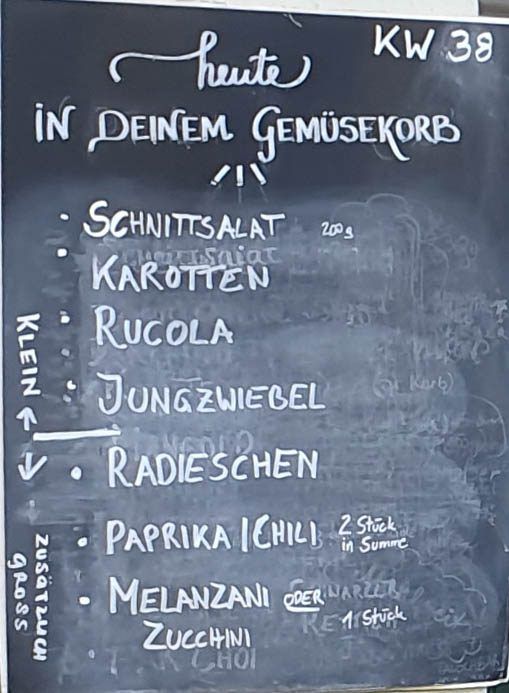 heute
KW 38
IN DEINEM GEMÜSEKORB
• SCHNITTSALAT 200g
• KAROTTEN
• RUCOLA
• JUNGZWIEBEL
KLEIN
• RADIESCHEN
• PAPRIKA/CHILI 2 Stück in Summe
• MELANZANI ODER 1 Stück
ZUCCHINI
ZUSÄTZLICH
GROSS